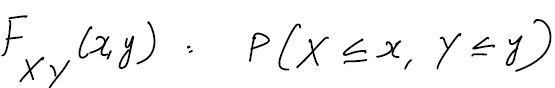 F_{XY}(x,y) : P(X ≤ x, Y ≤ y)